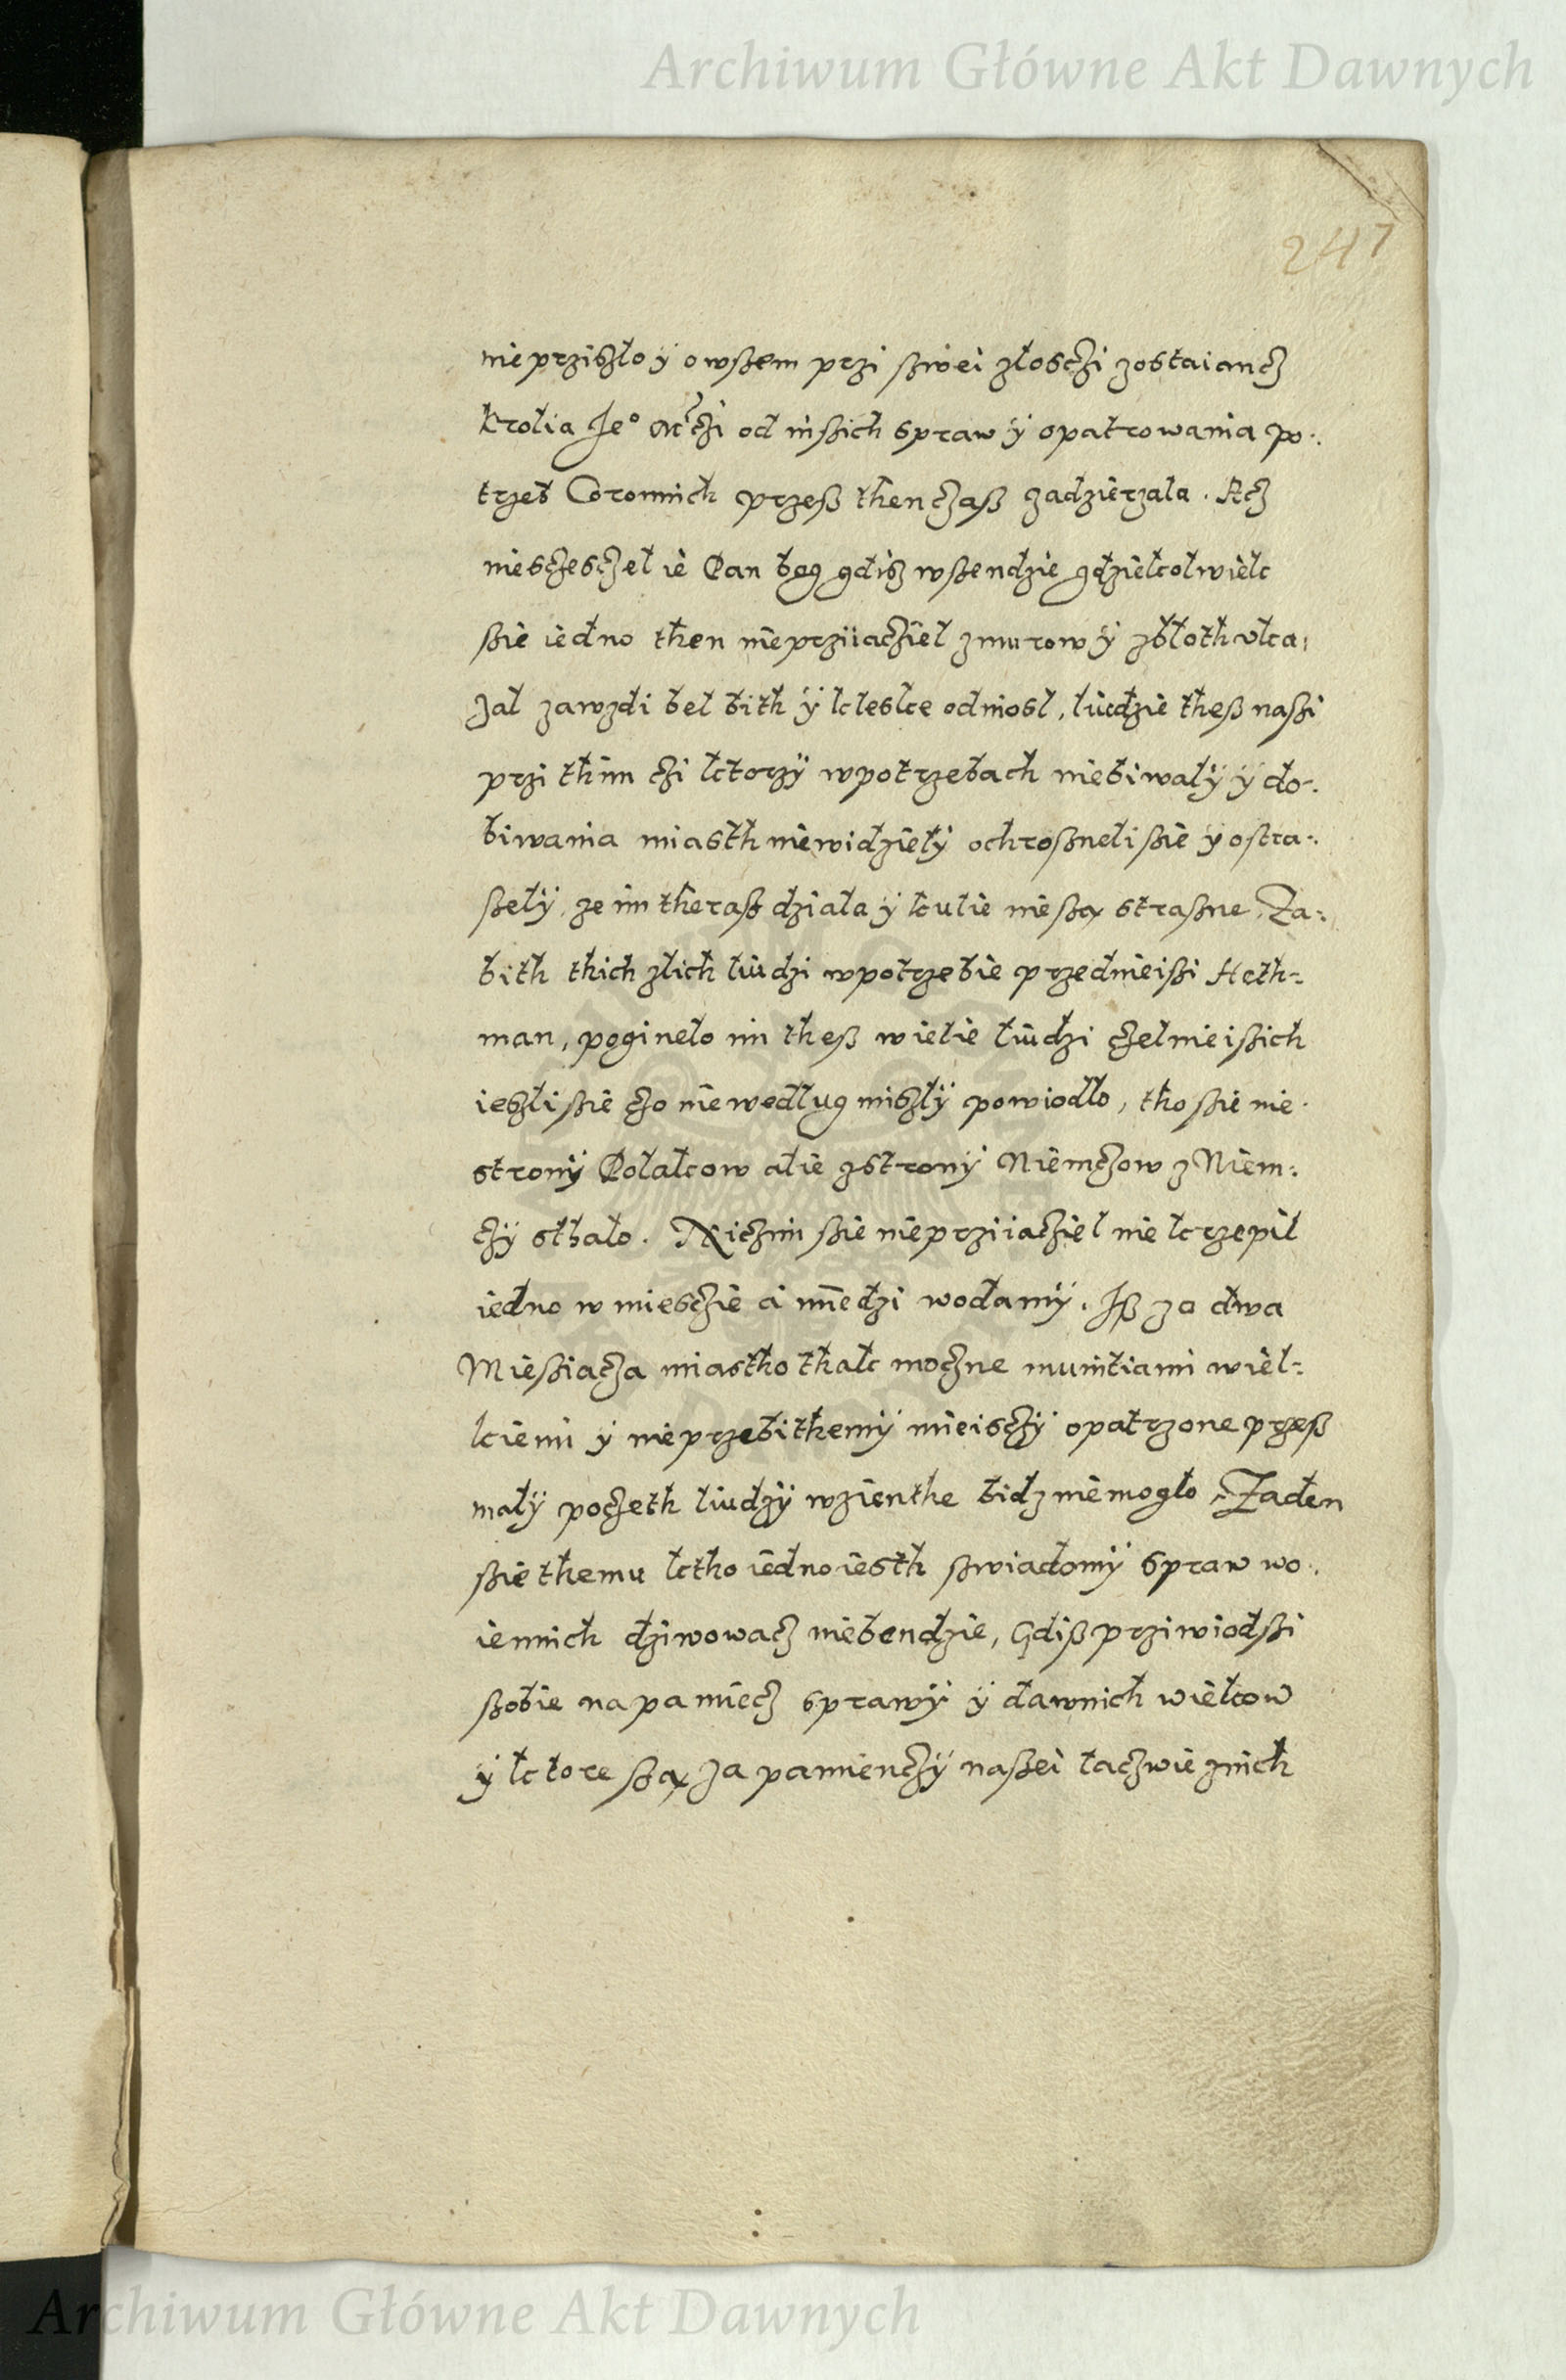 Archiwum Główne Akt Dawnych
247
nieprziszło ÿ owszem przi szwei złosczi zostaiancz
Krolia Je° Mczi od inszich spraw ÿ opatrowania po-
trzeb Coronnich przesz then czasz zadzierzala. Acz
niesczesczel ie Pan bog gdisz wszendzie gdziekolwiek
szie iedno then nieprziiacziel zmurow ÿ zbłoth vka-
zal zawzdi bel bith ÿ kleske odniosl, liudzie thesz naszi
przi thim czi ktorzÿ wpotrzebach niebiwalÿ ÿ do-
biwania miasth niewidzielÿ ochroszneli szie ÿ ostra-
szelÿ, ze im therasz działa ÿ kulie nie szą straszne. Za-
bith thich zlich liudzi wpotrzebie przednieiszi Heth-
man, poginelo im thesz wielie liudzi czelnieiszich
ieszli szie czo niewedlug miszlÿ powiodlo, tho szie nie
stronÿ Polakow alie zstronÿ Niemczow z Niem-
czÿ sthalo. Niczim szie nieprziiacziel nie krzepil
iedno w miesczie a miedzi wodamÿ. Isz za dwa
Miesziacza miastho thak moczne munitiami wiel-
kiemi ÿ nieprzebithemÿ mieisczÿ opatrzone przesz
malÿ poczeth liudzÿ wzienthe bidz niemoglo. Zaden
szie themu ktho iedno iesth szwiadomÿ spraw wo-
iennich dziwowacz niebendzie, Gdisz przywiodszi
szobie na pamiecz sprawÿ ÿ dawnich wiekow
ÿ ktore szą za pamienczÿ naszei laczwie znich
Archiwum Główne Akt Dawnych